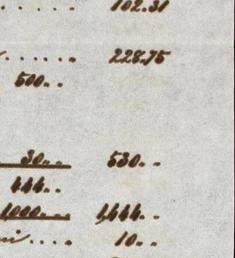 ..... 102.31
...... 228.75
500..
30... 530..
444..
1000... 1,444..
.... 10..